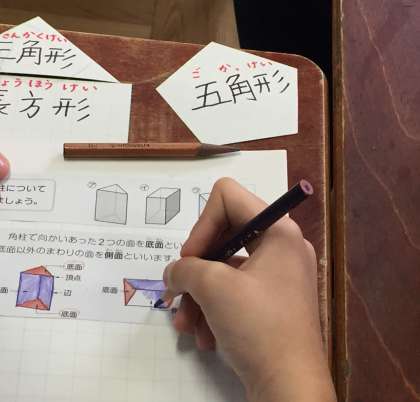 さんかくけい
三角形
ょうほう けい
長方形
ご かっ けい
五角形
柱について
ましょう。
ア
イ
ウ
角柱で向かいあった2つの面を底面とい
底面以外のまわりの面を側面といいます。
底面
頂点
面
辺
底面
底面